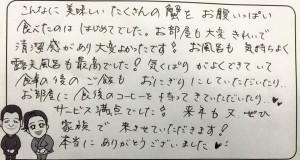 こんなに美味しいたくさんの蟹をお腹いっぱい
食べたのははじめてでした。お部屋も大変きれいで
清潔感があり大変よかったです！お風呂も気持ちよく
露天風呂も最高でした！気くばりがよくできていて
食事の後のご飯もおにぎりにしていただいたり..
お部屋に食後のコーヒーを持ってきていただいたり..
サービス満点でした！来年も又ぜひ
家族で来させていただきます！
本当にありがとうございました